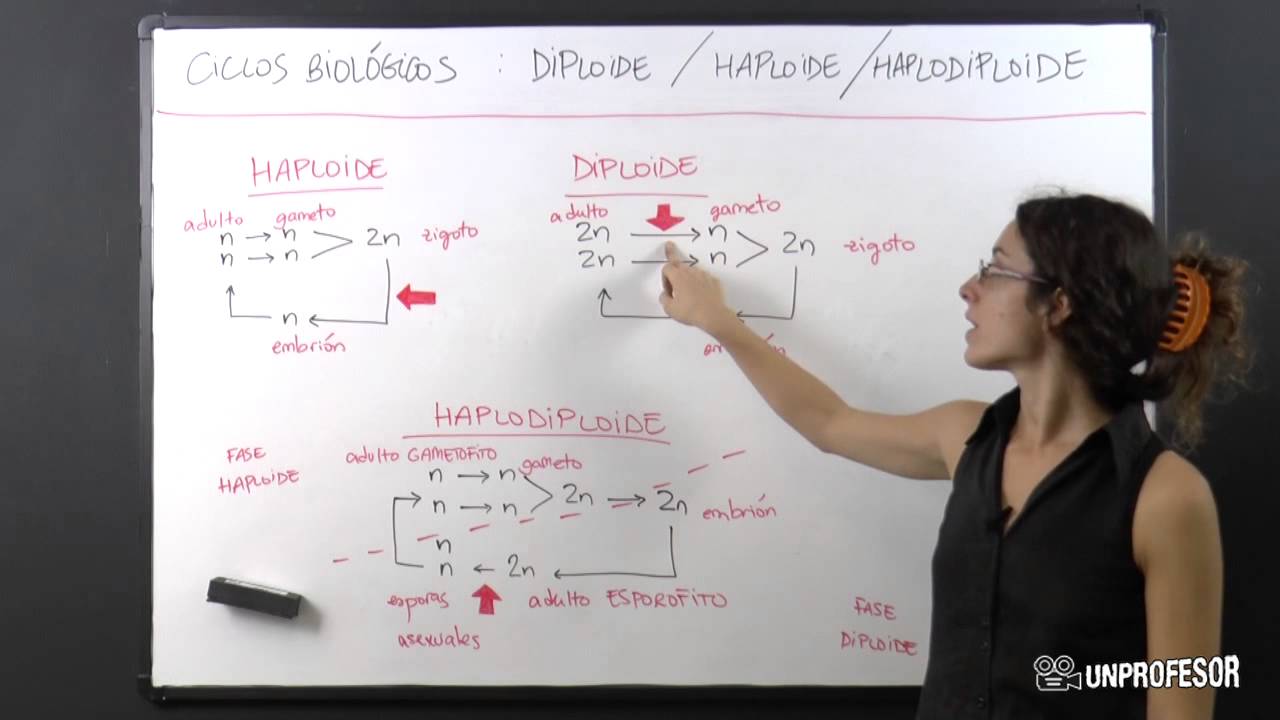 CICLOS BIOLÓGICOS : DIPLOIDE / HAPLOIDE / HAPLODIPLOIDE
HAPLOIDE
adulto gameto
n → n
n → n
2n zigoto
n
embrión
DIPLOIDE
adulto gameto
2n → n
2n → n
2n zigoto
HAPLODIPLOIDE
FASE
HAPLOIDE
adulto GAMETOFITO gameto
n → n
n → n
2n → 2n embrión
n
n ← 2n
esporas
asexuales
adulto ESPOROFITO
FASE
DIPLOIDE
UNPROFESOR